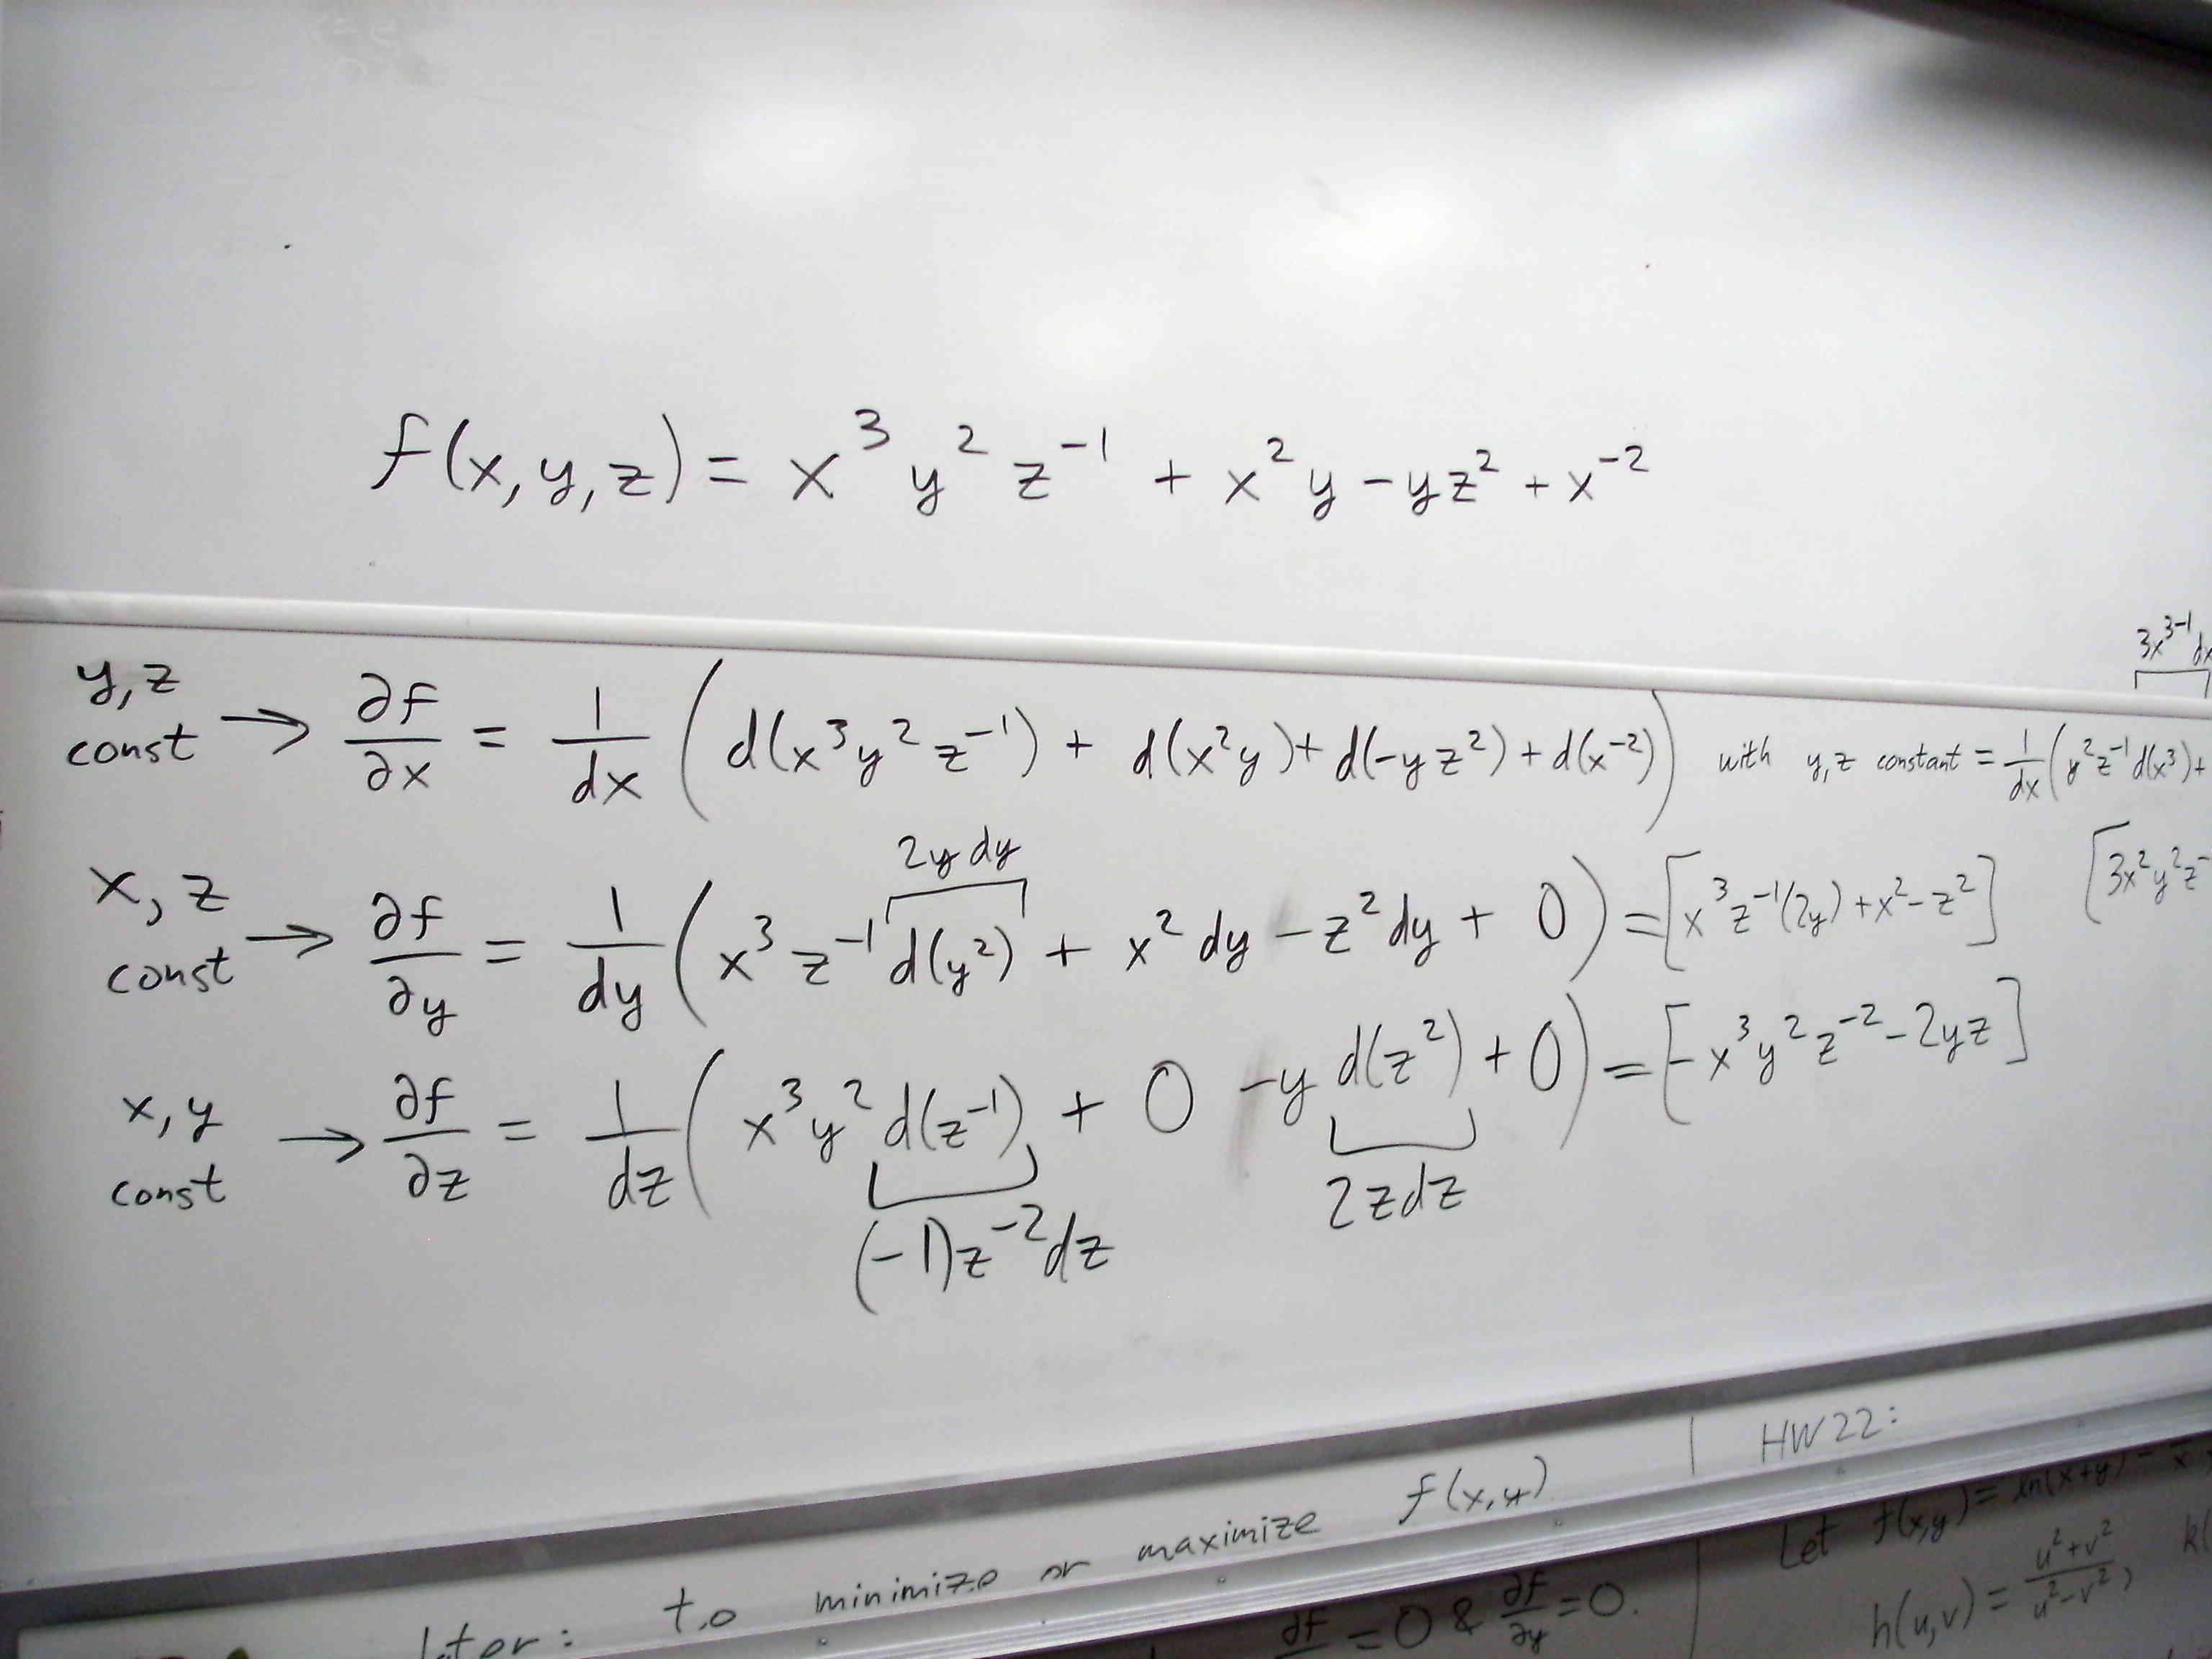 f(x,y,z) = x³y²z⁻¹ + x²y - yz² + x⁻²
3x³⁻¹dx
y,z const → ∂f/∂x = 1/dx ( d(x³y²z⁻¹) + d(x²y) + d(-yz²) + d(x⁻²) ) with y,z constant = 1/dx ( y²z⁻¹d(x³) +
[3x²y²z⁻
2y dy
x, z const → ∂f/∂y = 1/dy ( x³z⁻¹d(y²) + x²dy - z²dy + 0 ) = [x³z⁻¹(2y) + x² - z²]
x,y const → ∂f/∂z = 1/dz ( x³y²d(z⁻¹) + 0 - y d(z²) + 0 ) = [-x³y²z⁻² - 2yz]
(-1)z⁻²dz
2zdz
to minimize or maximize f(x,y)
∂f = 0 & ∂f/∂y = 0.
HW22:
Let f(x,y) = ln(x+y) -
h(u,v) = (u²+v²)/(u²-v²), k(